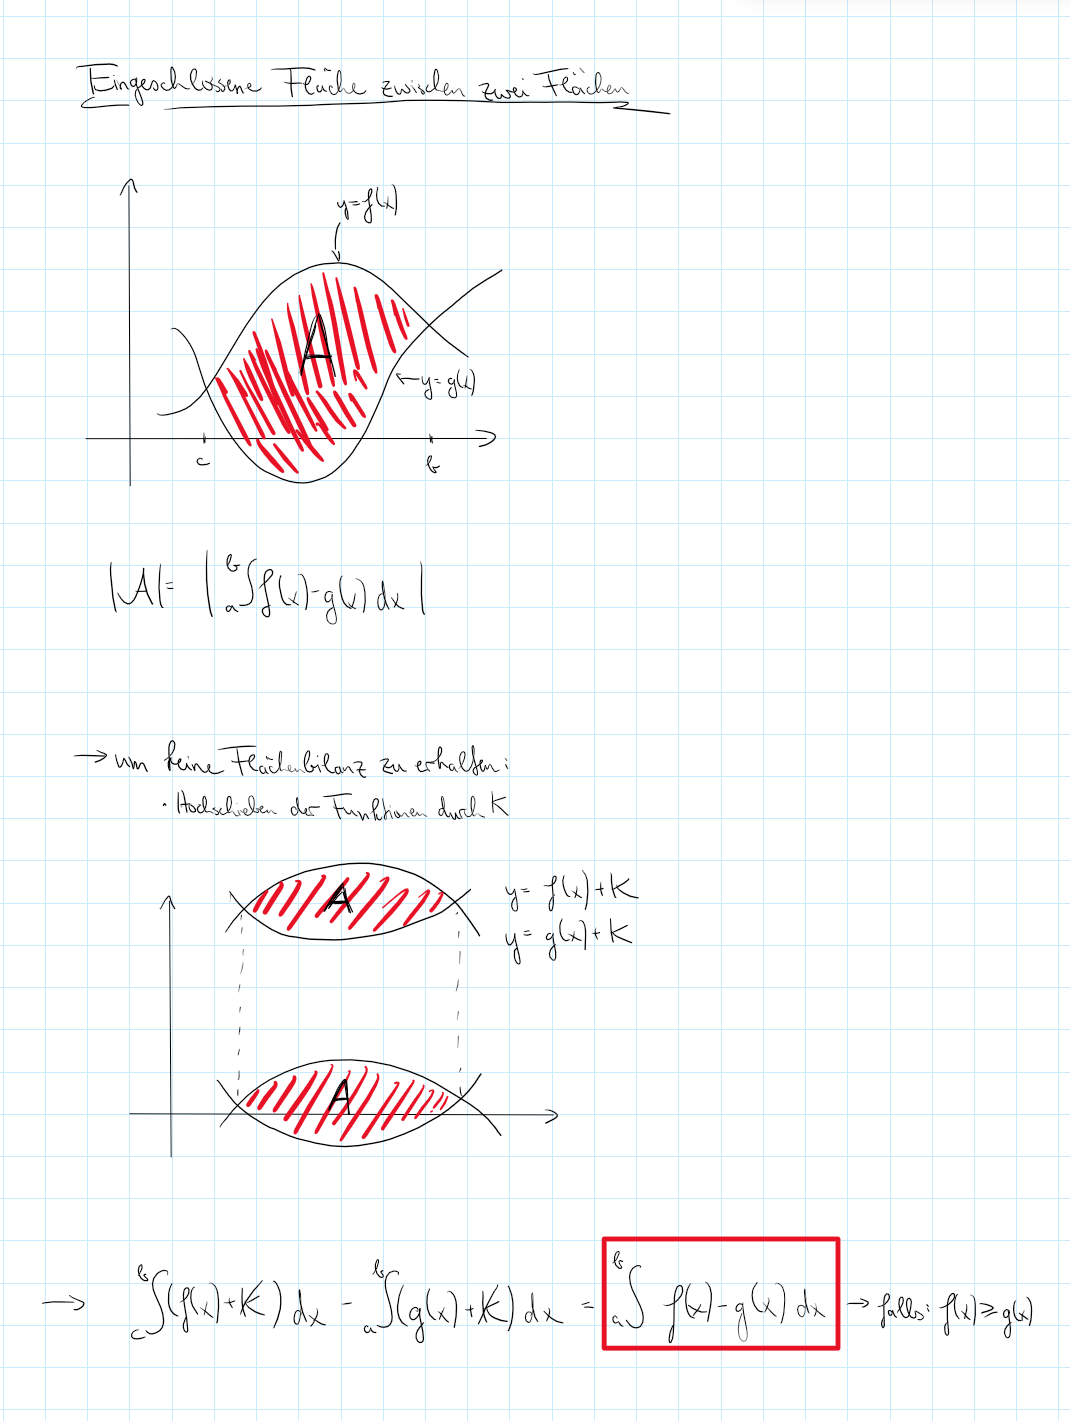 Eingeschlossene Fläche zwischen zwei Flächen
y=f(x)
A
y=g(x)
c
b
|A|= | a∫b f(x)-g(x) dx |
→ um keine Flächenbilanz zu erhalten:
· Hochschieben der Funktionen durch K
A
y= f(x)+K
y= g(x)+K
A
→ c∫b (f(x)+K) dx - a∫b (g(x)+K) dx = a∫b f(x)-g(x) dx → falls: f(x)≥g(x)